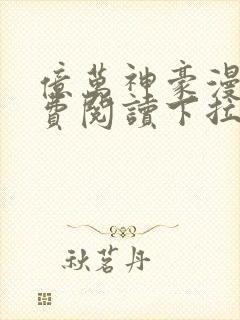 億萬神豪漫
費閱讀下拉
秋茗丹